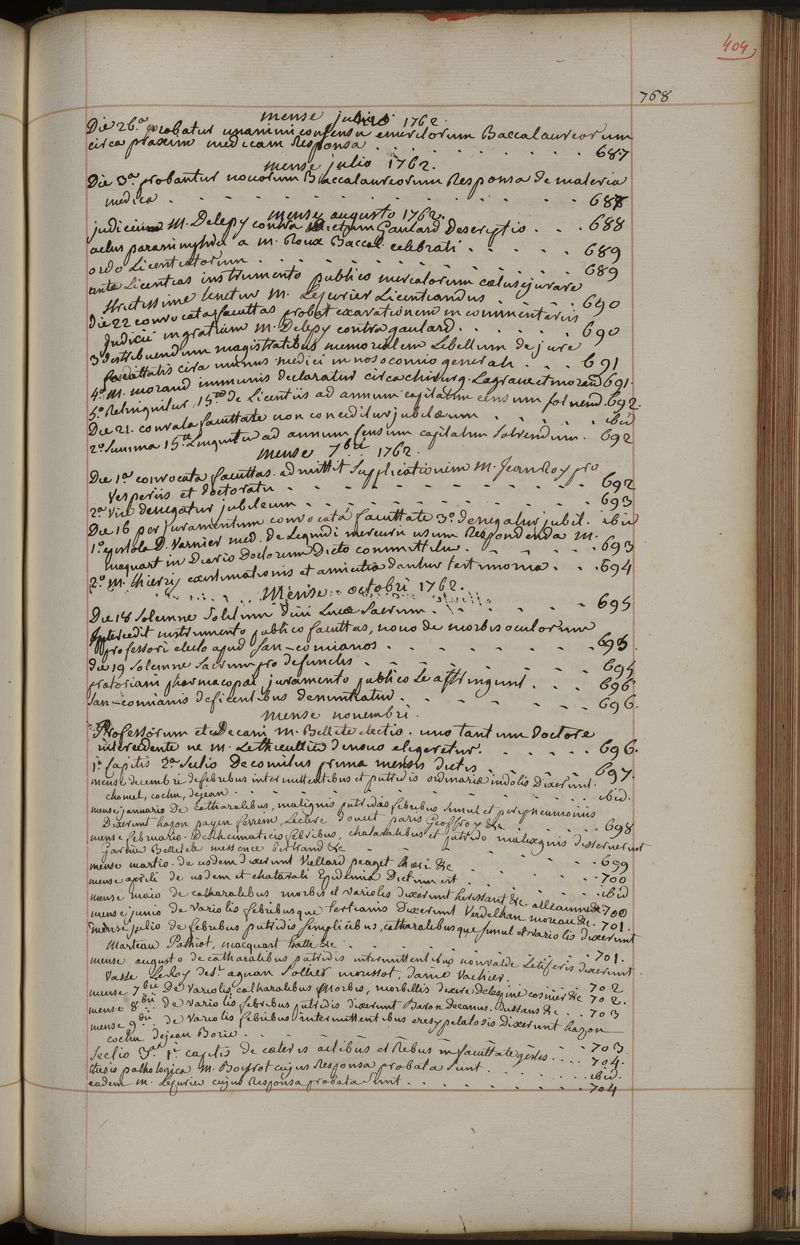 404
768
mense junio 1762.
Die 26.a probatur unanimi consensu emeritorum Baccalaureorum
circa praxim medicam Responsa . . . . . . . . 687
mense julio 1762.
Die 3.a probantur novorum Baccalaureorum Responsa de materia
medica . . . . . . . . . . . . 688
mense augusto 1762.
judicium M. Delepy contra Gaulard Descriptio . . . 688
actus paranymphi a m. Roux Baccal. celebrati . . . . . 689
ordo Licentiatorum . . . . . . . . . . 689
ante Licentias instrumento publico mercatorum cœtus jurare
strictissime tenetur M. Lejurier Licentiandus . . . . . 690
Die 22 convocata facultas probat exarationem in commentariis
Judicii in gratiam M. Delepy contra gaulard . . . . . . 690
3.o distribuendum magistratibus memorialem Libellum de jure
facultatis circa munus medici in nosocomio generali . . . 691
4.o M. morand immunis declaratur circa chirurg. Lagrave et morand 691.
5.o Relinquitur 15.ta de Licentiis ad annum capitatim censum solvend. 692.
Die 21. convocata facultate non conceditur jubilæum . . . . . ibid
2.o Summa 15.ta Linquitur ad annum censum capitatim Solvendum. 692
mense 7bri 1762.
Die 1.a convocata facultas. admittit Supplicationem M. Jeanroy pro
Vesperiis et Doctoratu . . . . . . . . . . 692
2.a Vice denegatur jubileum . . . . . . . . . 693
Die 16 per juramentum convocatâ facultate 3.o denegatur jubil. ibid
1.o epistola D. Varnier med. de Legendi mercurii usum Respondenda M.
macquart in Diario Doctorum Dicto committitur . . . . . 693
2.o M. thierry existimationis et amicitiæ dantur testimonia . . . 694
Mense octobri 1762.
Die 18 Solemne Solitum Divi Lucæ Sacrum . . . . . . 695
Intercedit instrumento publico facultas, novo de morbis oculorum
professori electo apud San-comianos . . . . . . . 695
die 19 Solemne Sacrum pro defunctis . . . . . . . 695
pratoriani pharmacopæi juramento publico Se astringunt . . . 696
San-comianis deficientibus denuntiatur . . . . . . . 696.
mense novembri.
Professorum et Decani M. Bellete electio. uno tantum Doctore
intercedente ne M. Lethieullier denuo elegeretur. . . . . . 696.
1.i Capitis 2.a Sectio De comitiis prima mensis dictis . . . . . 697.
mense decembri de febribus intermittentibus et putridis ordinariæ indolis Dixerunt
chomel, cochu, dejean . . . . . . . . . . ibid.
mense januario De Catharalibus, malignis putridas febribus Simul et peripneumoniis
Dixerunt hazon payen ferrem, Lecure Douet paris Geoffroy &c . . . . 698
mense februario. De rheumaticis febribus, chataralibus et putrido malignis disseruerunt
Garbier Belletete messence bertrand &c . . . . . . 699
mense martio. de iisdem dixerunt Viellard peaget thæri &c
mense aprili de iisdem et chatarali Epidemia Dictum est . . . . 700
mense maio de catharalibus morbis et variolis dixerunt herissant &c. alleaume &c ibid
mense junio de variolis febribusque tertianis Dixerunt Verdelhan moreau &c. 700
mense julio de febribus putridis simplicibus, catharalibusque simul et variolis dixerunt 701.
marteau Pathiot, macquart hatte &c
mense augusto de catharalibus putridis intermittentibus non valde Letiferis dixerunt 701.
Vasse LeRoy des.t agnan Sollier moussot, Jamé Vachier.
mense 7bri De Variolis catharalibus morbis, morbillis dixere delespine cosnier &c 702
mense 8bri de variolis febribus putridis dixerunt Baron Decanus. Bussans &c . . 702.
mense 9bri de variolis febribus intermittentibus eresypelatosis Dixerunt hazon 703
cochu dejean Borie . . . . . . . . . . . 703
Sectio 3.a 1.i capitis de cæteris actibus et Rebus in facultate gestis . . . . 704.
thesis pathologica M. Boyrot cujus Responsa probata Sunt . . . . . ibid.
eadem m. Lejurier cujus Responsa probata Sunt . . . . . . . 704